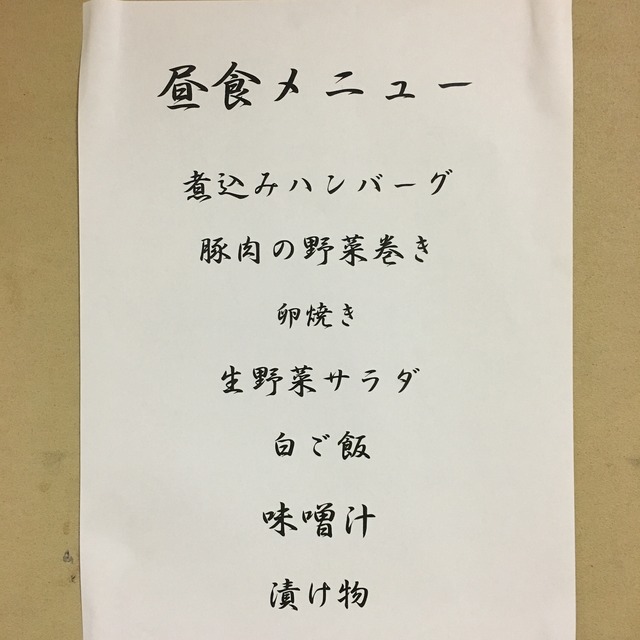 昼食メニュー
煮込みハンバーグ
豚肉の野菜巻き
卵焼き
生野菜サラダ
白ご飯
味噌汁
漬け物